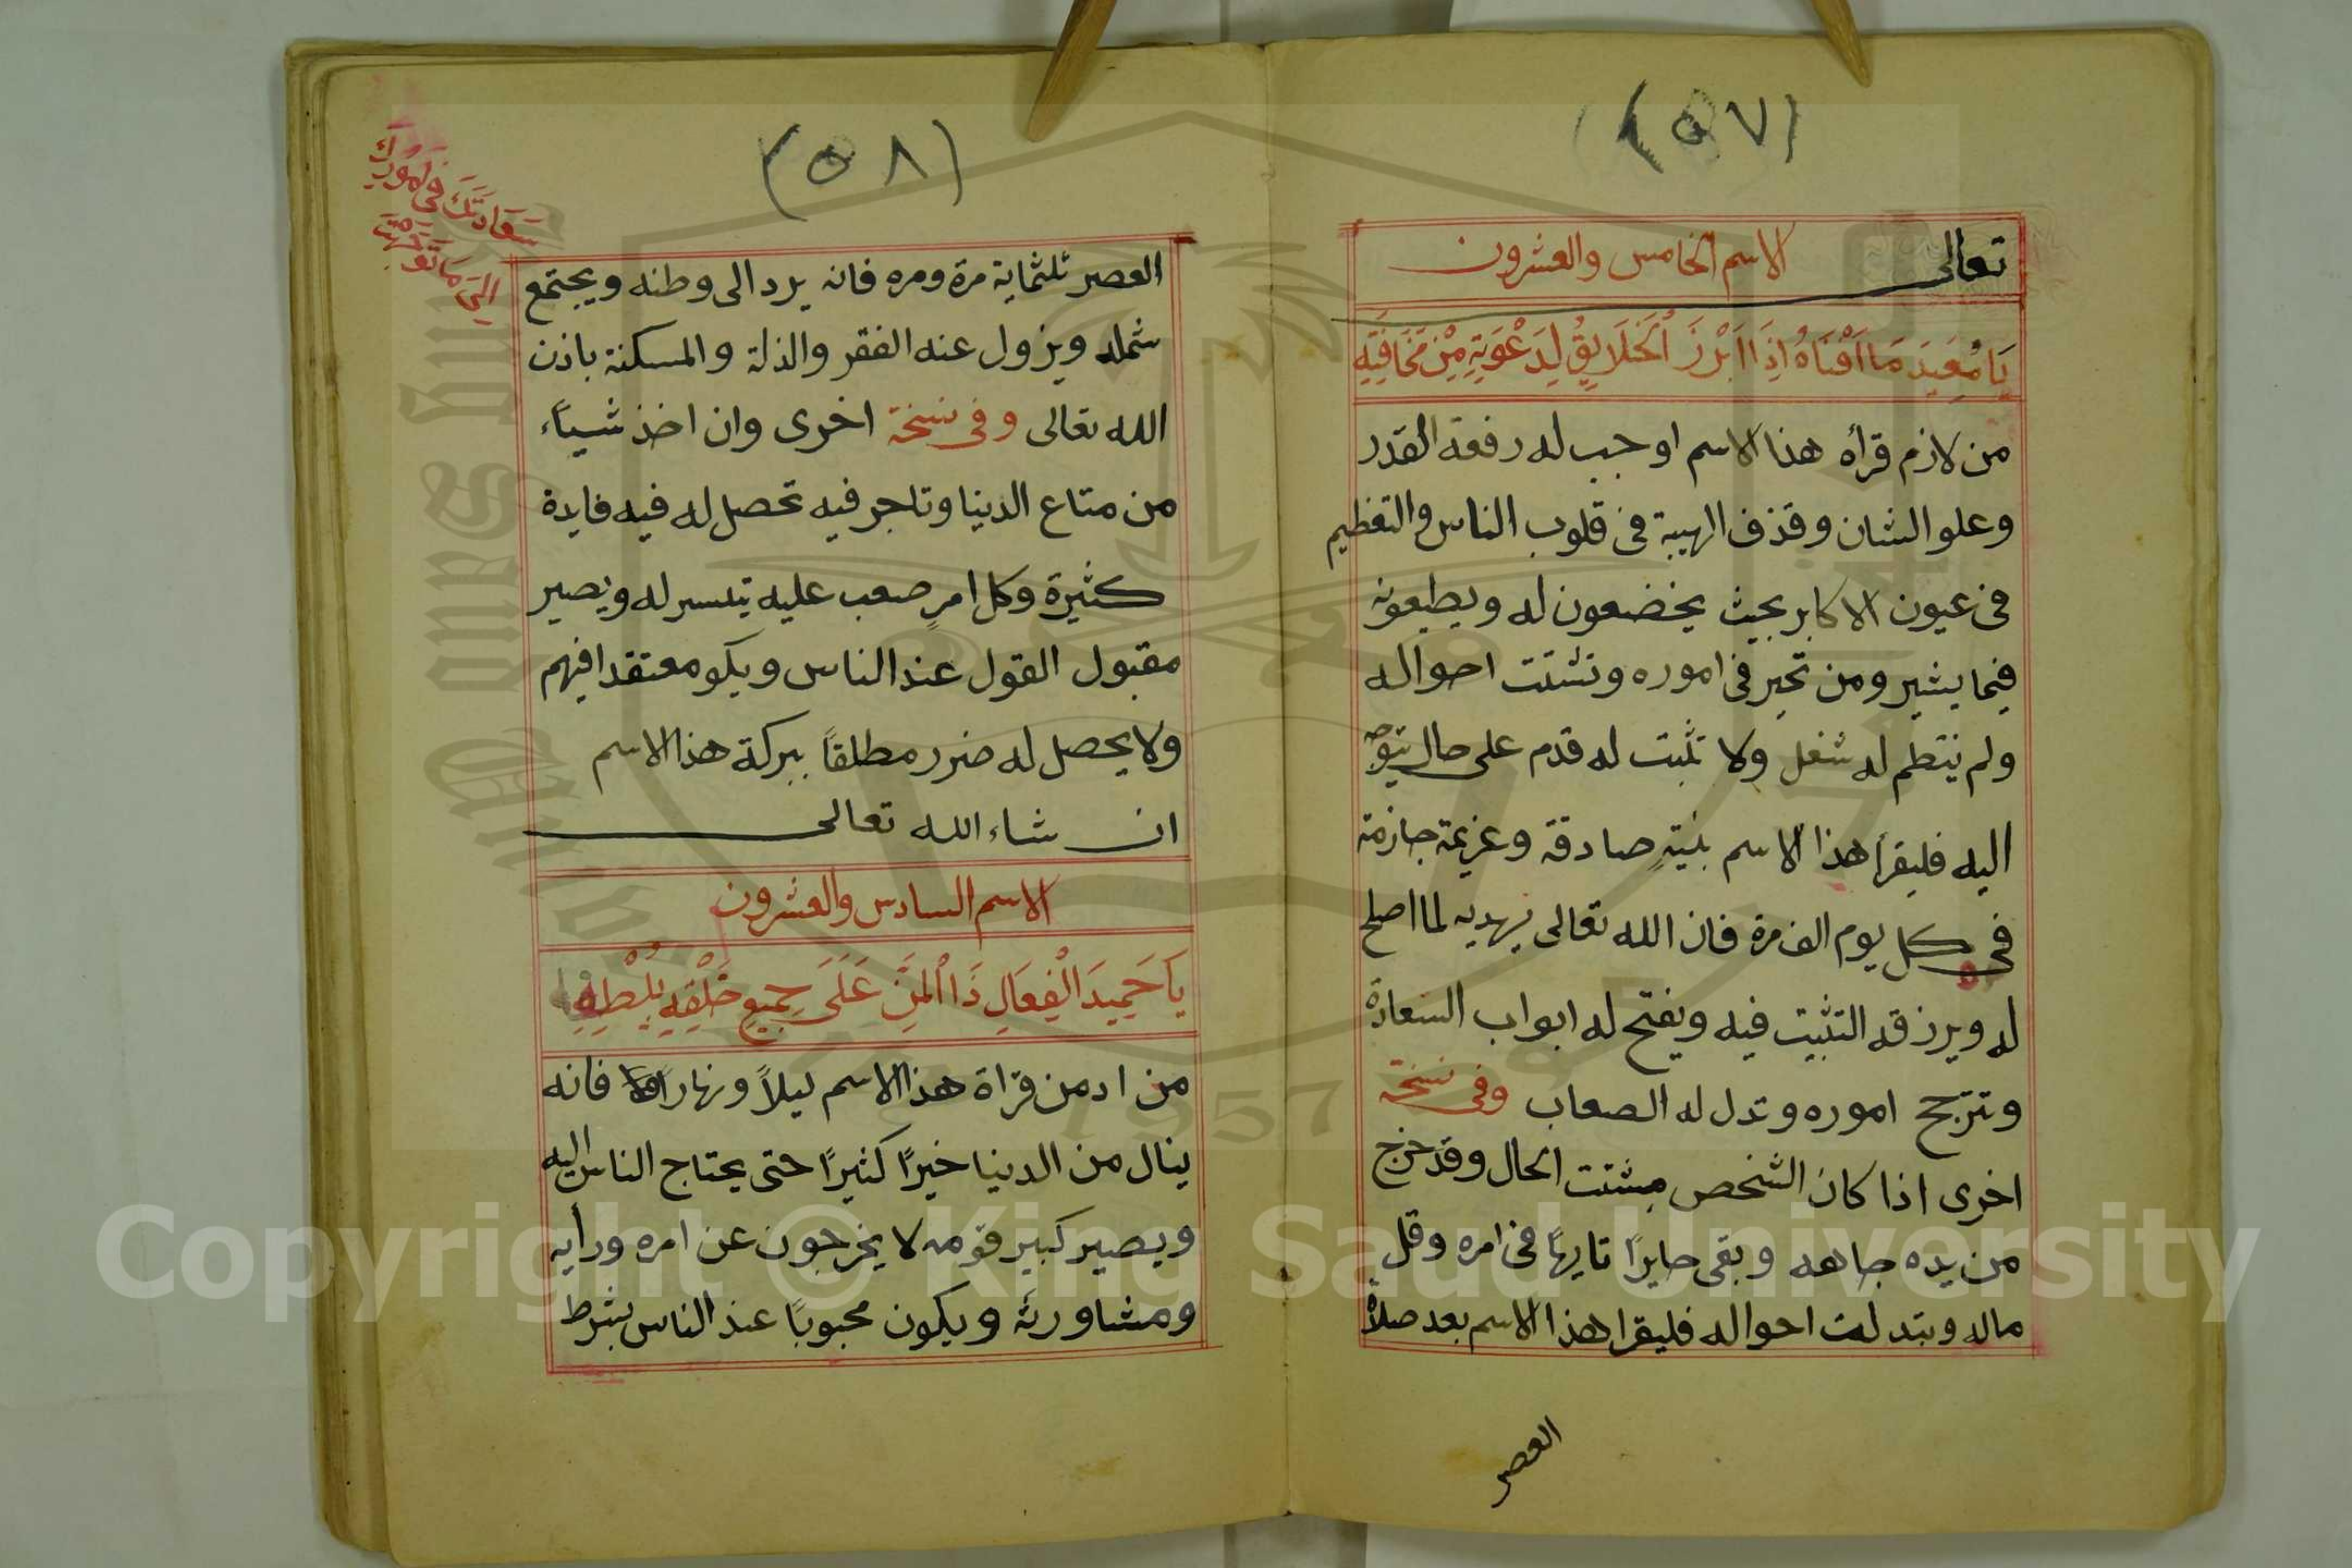 (٥٧)
تعالى الاسم الخامس والعشرون
يَا مُعِيدَ مَا اَفْنَاهُ اِذَا اَبْرَزَ الْخَلَايِقُ لِدَعْوَتِهِ مِنْ مَخَافَتِهِ
من لازم قرأه هذا الاسم اوجب له رفعة القدر
وعلو الشان وقذف الهيبة فى قلوب الناس والتعظيم
فى عيون الاكابر بحيث يخضعون له ويطيعونه
فيما يشير ومن تحير فى اموره وتشتت احواله
ولم ينتظم له شغل ولا تثبت له قدم على حال يتوجه
اليه فليقرأ هذا الاسم بنيةٍ صادقة وعزيمة جازمة
فى كل يوم الف مرة فان الله تعالى يهديه لما اصلح
له ويرزقه التثبيت فيه ويفتح له ابواب السعادة
وتترجح اموره وتدل له الصعاب وفى نسخة
اخرى اذا كان الشخص مشتت الحال وقد خرج
من يده جاهه وبقى حايرًا تايهًا فى امره وقل
ماله وتبدلت احواله فليقرا هذا الاسم بعد صلاة
العصر
(٥٨)
سَعَادَتَكَ فى اُمُورِكَ
الىَ مَا
العصر ثلثماية مرة ومره فانه يرد الى وطنه ويجتمع
شمله ويزول عنه الفقر والذلة والمسكنة باذن
الله تعالى وفى نسخة اخرى وان اخذ شيأً
من متاع الدنيا وتاجر فيه تحصل له فيه فايدة
كثيرة وكل امرٍ صعب عليه تيسر له ويصير
مقبول القول عند الناس ويكو معتقدا فيهم
ولا يحصل له ضرر مطلقاً ببركة هذا الاسم
ان شاء الله تعالى
الاسم السادس والعشرون
يَا حَمِيدَ الْفِعَالِ ذَا الْمَنِّ عَلَى جَمِيعِ خَلْقِهِ بِلُطْفِهِ
من ادمن قرأة هذا الاسم ليلاً ونهارًا فانه
ينال من الدنيا خيرًا كثيرًا حتى يحتاج الناس اليه
ويصير كبير قومه لا يخرجون عن امره ورأيه
ومشاورته ويكون محبوبًا عند الناس بشرط
Copyright © King Saud University
1957